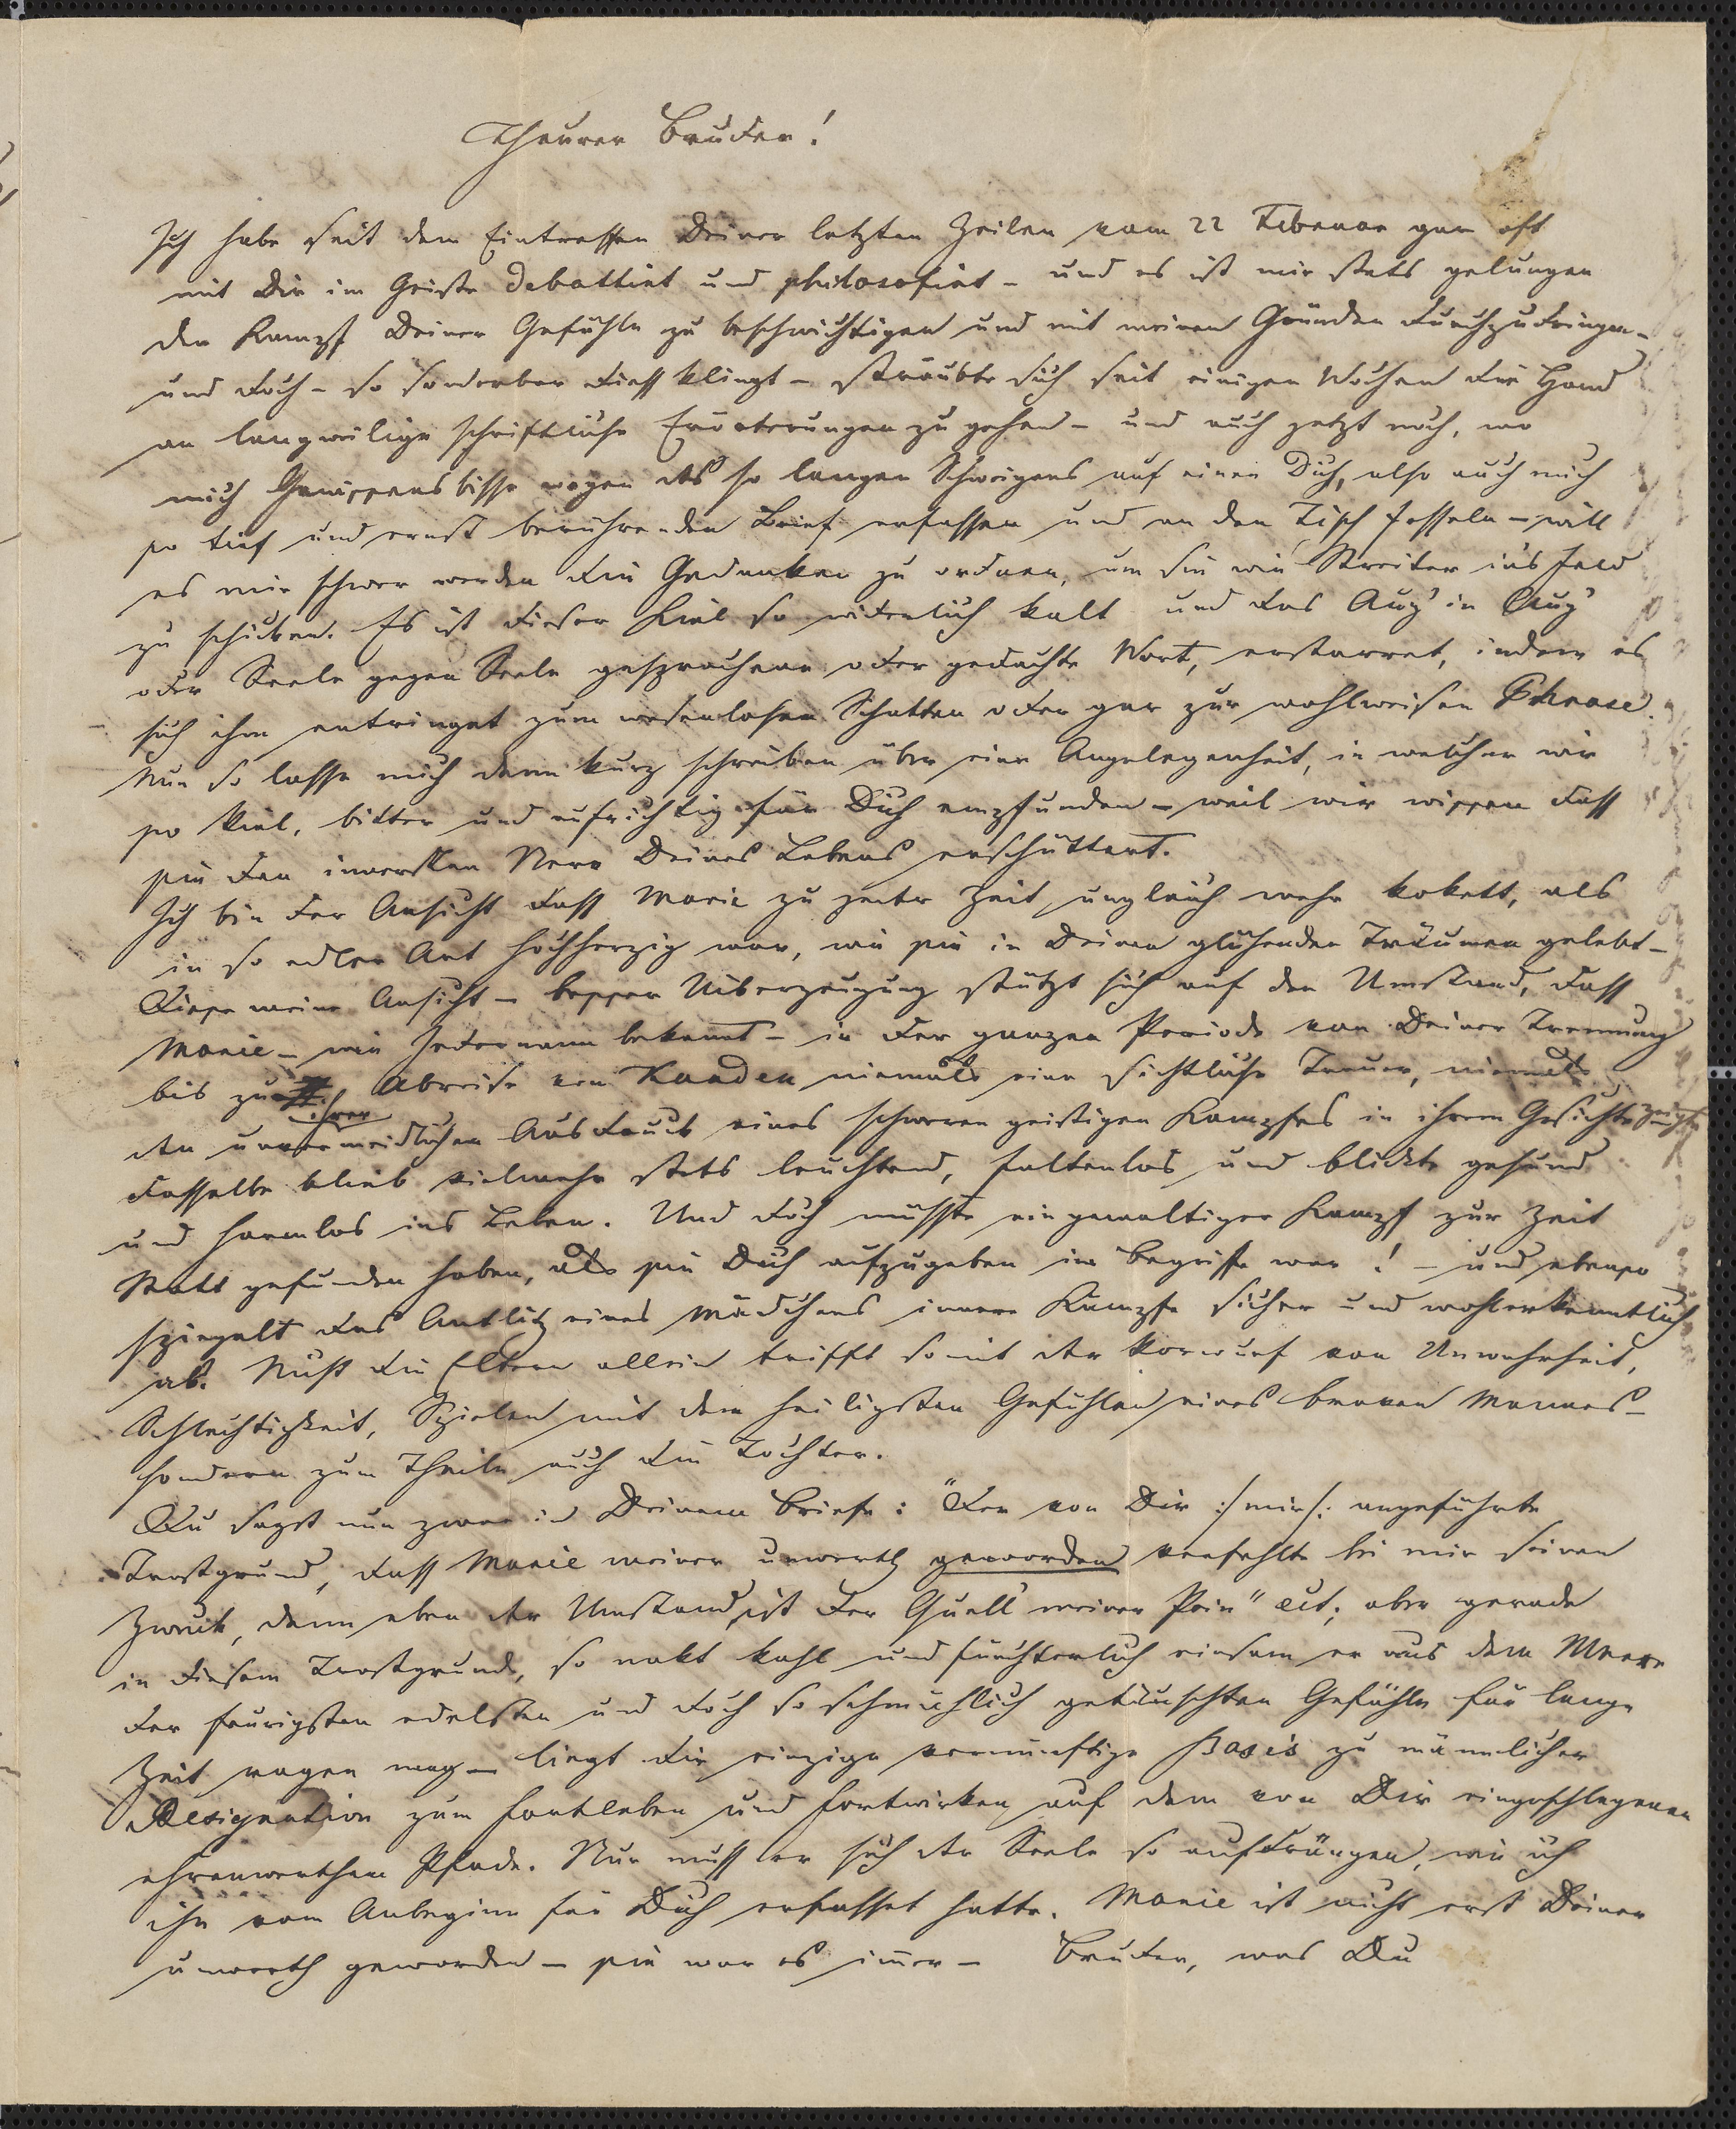 Theurer Bruder!
Ich habe seit dem Eintreffen Deiner letzten Zeilen vom 22 Februar gar oft
mit Dir im Geiste debattirt und philosofirt – und es ist mir stets gelungen
den Kampf Deiner Gefühle zu beschwichtigen und mit meinen Gründen durchzudringen –
und doch – so sonderbar diess klingt – sträubte sich seit einigen Wochen die Hand
an langweilige schriftliche Erörterungen zu gehen – und auch jetzt noch, wo
mich Gewissensbisse wegen des so langen Schweigens auf einen Dich, also auch mich
so tief und ernst berührenden Brief erfassen und an den Tisch fesseln – will
es mir schwer werden die Gedanken zu ordnen, um sie wie Streiter in's Feld
zu schicken. Es ist dieser Kiel so widerlich kalt und das Aug' in Aug'
oder Seele gegen Seele gesprochene oder gedachte Wort, erstarret, indem es
sich ihm entringet zum wesenlosen Schatten oder gar zur wohlweisen Phrase.
Nun so lasse mich denn kurz schreiben über eine Angelegenheit, in welcher wir
so viel, bitter und aufrichtig für Dich empfunden – weil wir wissen dass
sie den innersten Nerv Deines Lebens erschüttert.
Ich bin der Ansicht dass Marie zu jeder Zeit ungleich mehr kokett, als
in so edler Art hochherzig war, wie sie in Deinen glühenden Träumen gelebt –
Diese meine Ansicht – besser Uiberzeugung stützt sich auf den Umstand, dass
Marie – wie Jedermann bekannt – in der ganzen Periode von Deiner Trennung
bis zu ihrer Abreise von Kaaden niemals eine sichtliche Trauer, niemals
den unvermeidlichen Ausdruck eines schweren geistigen Kampfes in ihrem Gesichte zeigte
dasselbe blieb vielmehr stets leuchtend, faltenlos und blickte gesund
und harmlos ins Leben. Und doch müsste ein gewaltiger Kampf zur Zeit
Statt gefunden haben, als sie Dich aufzugeben im Begriffe war! – und ebenso
spiegelt das Antlitz eines Mädchens innere Kämpfe sicher und wohlerkenntlich
ab. Nicht die Eltern allein trifft somit der Vorwurf von Unwahrheit,
Schlechtigkeit, Spielen mit den heiligsten Gefühlen eines braven Mannes –
sondern zum Theile auch die Tochter.
Du sagst nun zwar in Deinem Briefe: "Der von Dir :/mir/: angeführte
Trostgrund, dass Marie meiner unwerth geworden verfehlte bei mir seinen
Zweck, denn eben der Umstand ist der Quell meiner Pein" ect; aber gerade
in diesem Trostgrunde, so nakt kahl und fürchterlich einsam er aus dem Meere
der feurigsten edelsten und doch so schmählich getäuschten Gefühle für lange
Zeit ragen mag – liegt die einzige vernünftige Basis zu männlicher
Resignation zum Fortleben und Fortwirken auf dem von Dir eingeschlagenen
ehrenwerthen Pfade. Nur muss er sich der Seele so aufdrängen, wie ich
ihn vom Anbeginn für Dich erfasset hatte. Marie ist nicht erst Deiner
unwerth geworden – sie war es immer – Bruder, was Du